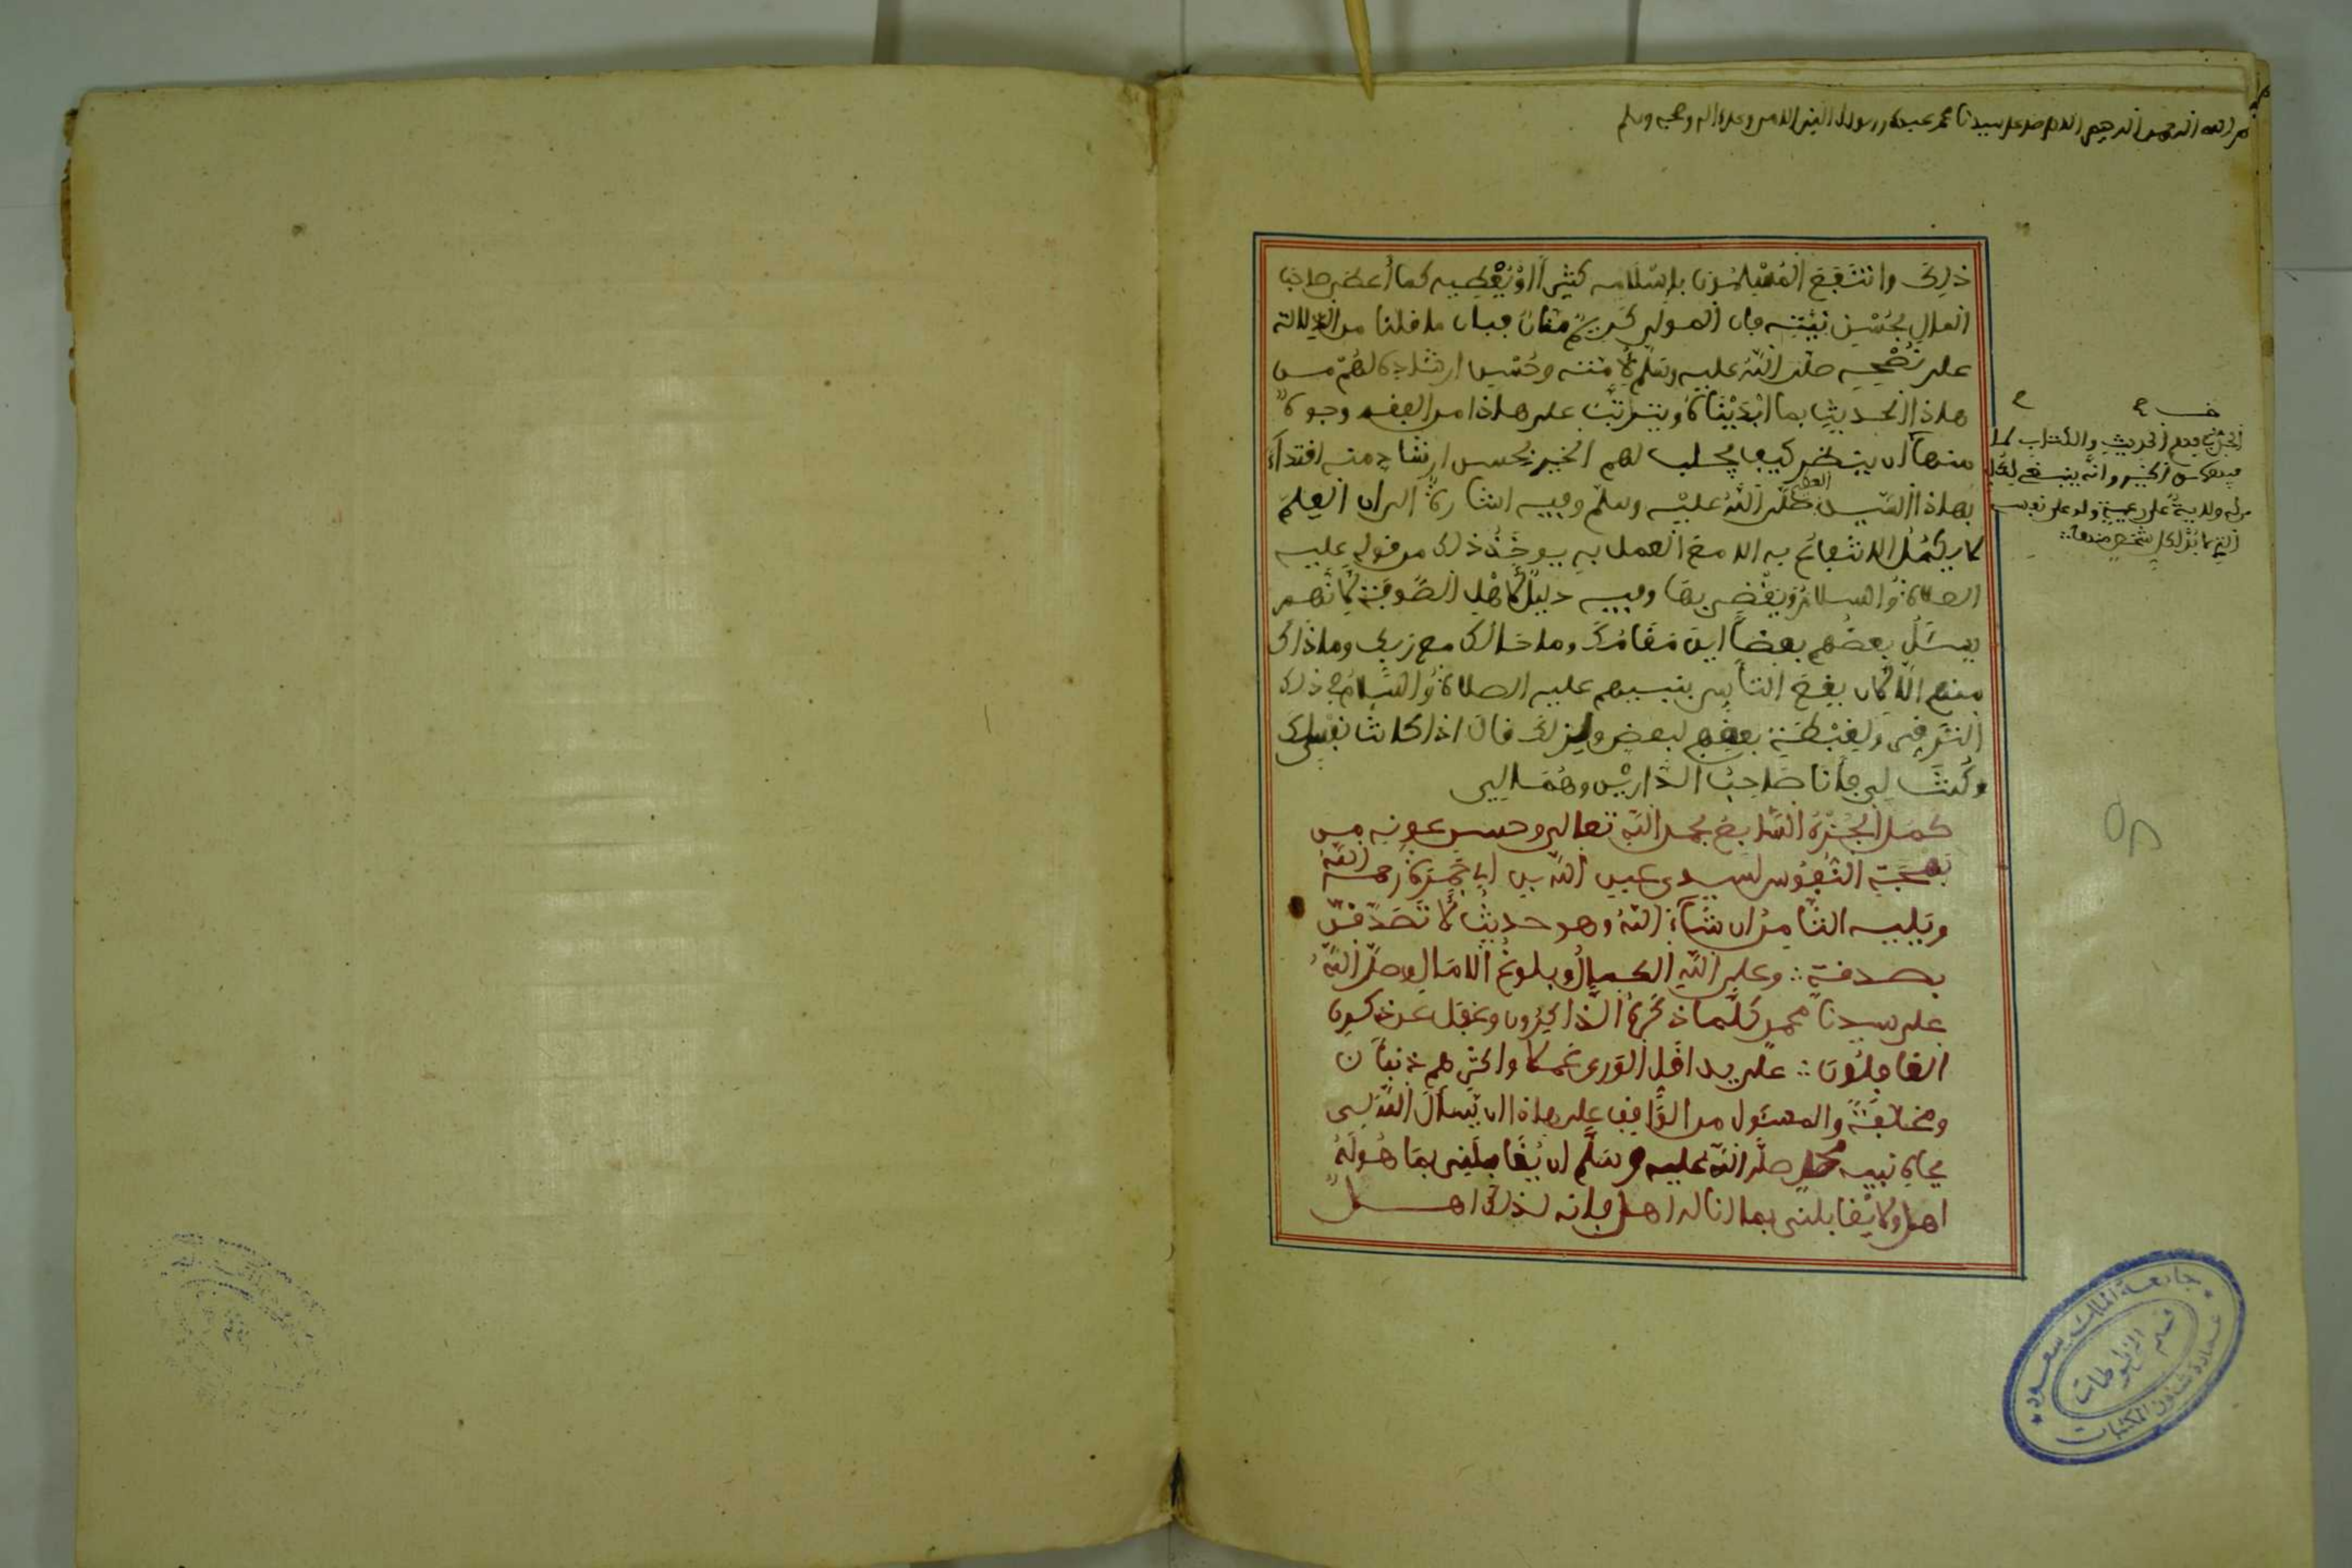 بسم الله الرحمن الرحيم اللهم صل على سيدنا محمد عبدك ورسولك النبي الامي وعلى اله وصحبه وسلم
ذلك وانتفع المسلمون باسلامه كثيرا او يعطيه كما أعطى صاحب
المال بحسن نيته فان المولى كريم منان فبان ما قلنا من الدلالة
على نصحه صلى الله عليه وسلم لأمته وحسن ارشاده لهم من
هاذا الحديث بما ابديناه ويترتب على هاذا من الفقه وجوه
منها ان ينظر كيف يجلب لهم الخير بحسن ارشاد منه اقتداء
بهاذا السيد صلى الله عليه وسلم وفيه اشارة الى ان العلم
لا يكمل الانتفاع به الا مع العمل به يوخذ ذلك من قوله عليه
الصلاة والسلام ويقضى بها وفيه دليل لأهل الصوفة لأنهم
يسئل بعضهم بعضا اين مقامك وما حالك مع ربك وما ذاك
منهم الا لأن يقع التأسي بنبيهم عليه الصلاة والسلام في ذلك
الترقي ولغبطة بعضهم لبعض ولذلك قال اذا كانت نفسك لك
وكنت لي فأنا صاحب الدارين وهما لي
كمل الجزء السابع بحمد الله تعالى وحسن عونه من
بهجة النفوس لسيدي عبد الله بن ابي جمرة رحمه الله
ويليه الثامن ان شاء الله وهو حديث لا تصدقن
بصدقة وعلى الله الكمال وبلوغ الامال وصلى الله
على سيدنا محمد كلما ذكره الذاكرون وغفل عن ذكره
الغافلون على يد اقل الورى عملا واكثرهم ذنبا
ومخالفة والمسئول من الواقف على هاذا ان يسأل الله لي
بجاه نبيه محمد صلى الله عليه وسلم ان يقابلني بما هو له
اهل ولا يقابلني بما انا له اهل فانه لذلك اهل
جامعة الملك سعود
قسم المخطوطات
عمادة شئون المكتبات